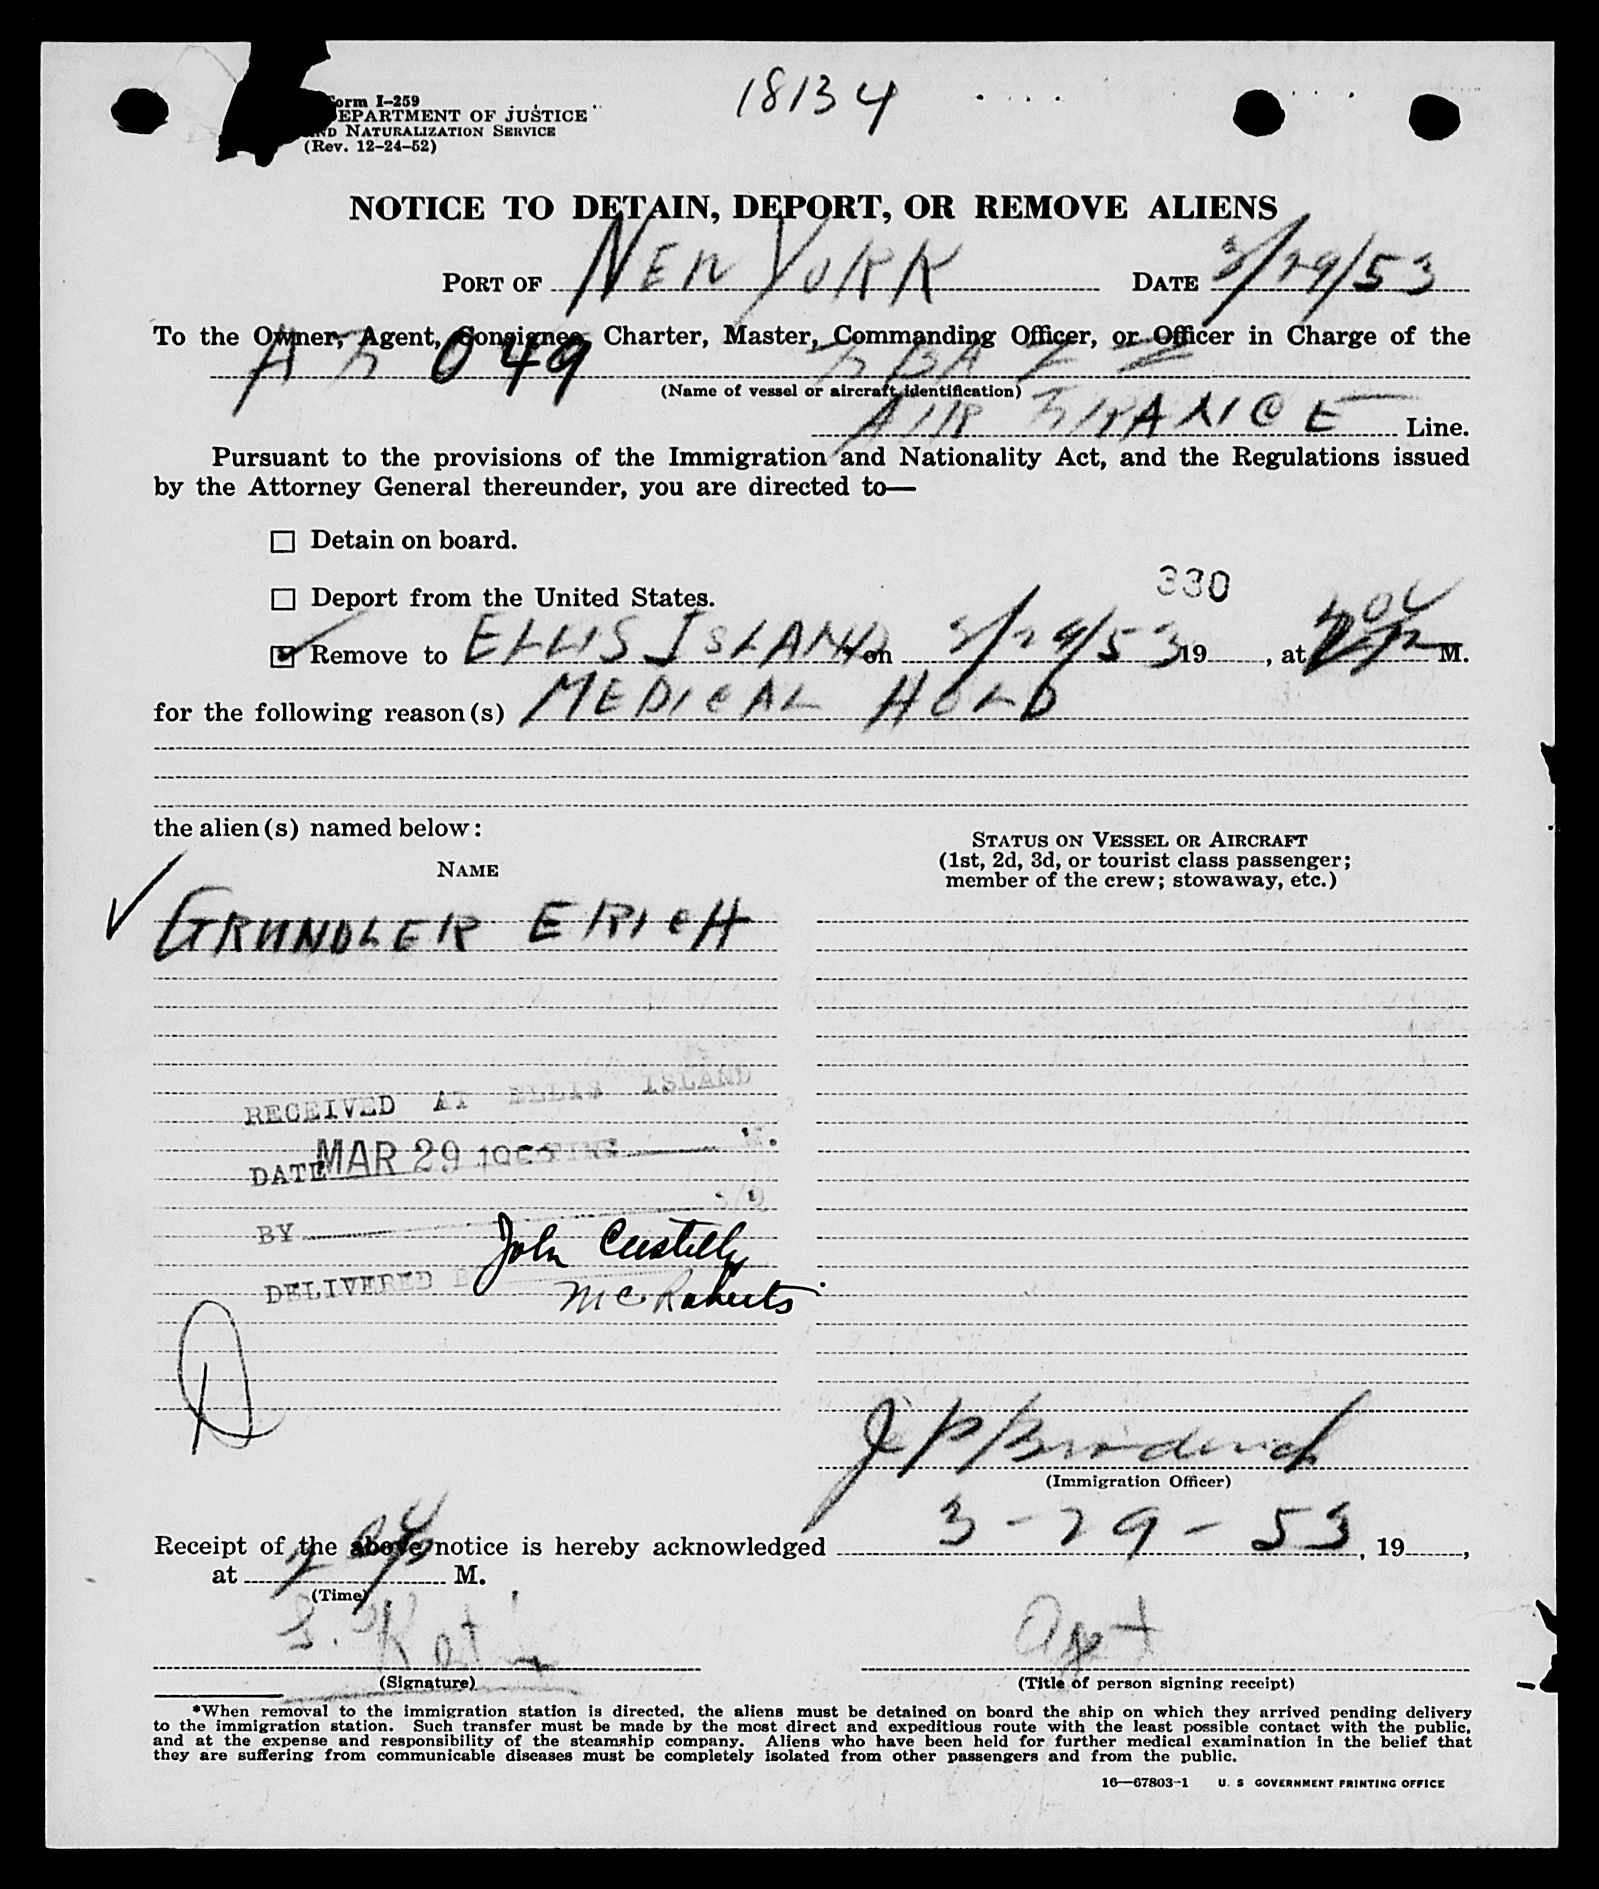 18134
orm I-259
EPARTMENT OF JUSTICE
ND NATURALIZATION SERVICE
(Rev. 12-24-52)
NOTICE TO DETAIN, DEPORT, OR REMOVE ALIENS
PORT OF NEW YORK DATE 3/29/53
To the Owner, Agent, Consignee, Charter, Master, Commanding Officer, or Officer in Charge of the
AF 049 FBAZZ
(Name of vessel or aircraft identification)
AIR FRANCE Line.
Pursuant to the provisions of the Immigration and Nationality Act, and the Regulations issued
by the Attorney General thereunder, you are directed to—
Detain on board.
330
Deport from the United States.
Remove to ELLIS ISLAND on 3/29/53 19 , at M.
for the following reason(s) MEDICAL HOLD
the alien(s) named below:
NAME
STATUS ON VESSEL OR AIRCRAFT
(1st, 2d, 3d, or tourist class passenger;
member of the crew; stowaway, etc.)
GRUNDLER ERICH
RECEIVED AT ELLIS ISLAND
DATE MAR 29 TIME M.
BY
John Custelly
DELIVERED B
McRoberts
J P Broderick
(Immigration Officer)
Receipt of the above notice is hereby acknowledged 3-29-53, 19 ,
at M.
(Time)
Agt
(Signature) (Title of person signing receipt)
*When removal to the immigration station is directed, the aliens must be detained on board the ship on which they arrived pending delivery
to the immigration station. Such transfer must be made by the most direct and expeditious route with the least possible contact with the public,
and at the expense and responsibility of the steamship company. Aliens who have been held for further medical examination in the belief that
they are suffering from communicable diseases must be completely isolated from other passengers and from the public.
16—67803-1 U. S GOVERNMENT PRINTING OFFICE